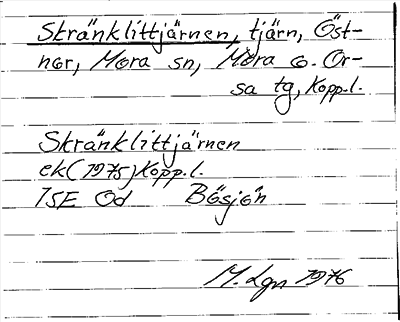 Stränklittjärnen, tjärn, Öst-
nor, Mora sn, Mora o. Or-
sa tg, Kopp.l.
Stränklittjärnen
ek (1975) Kopp.l.
15E Od Bösjön
M. Lgn 1976